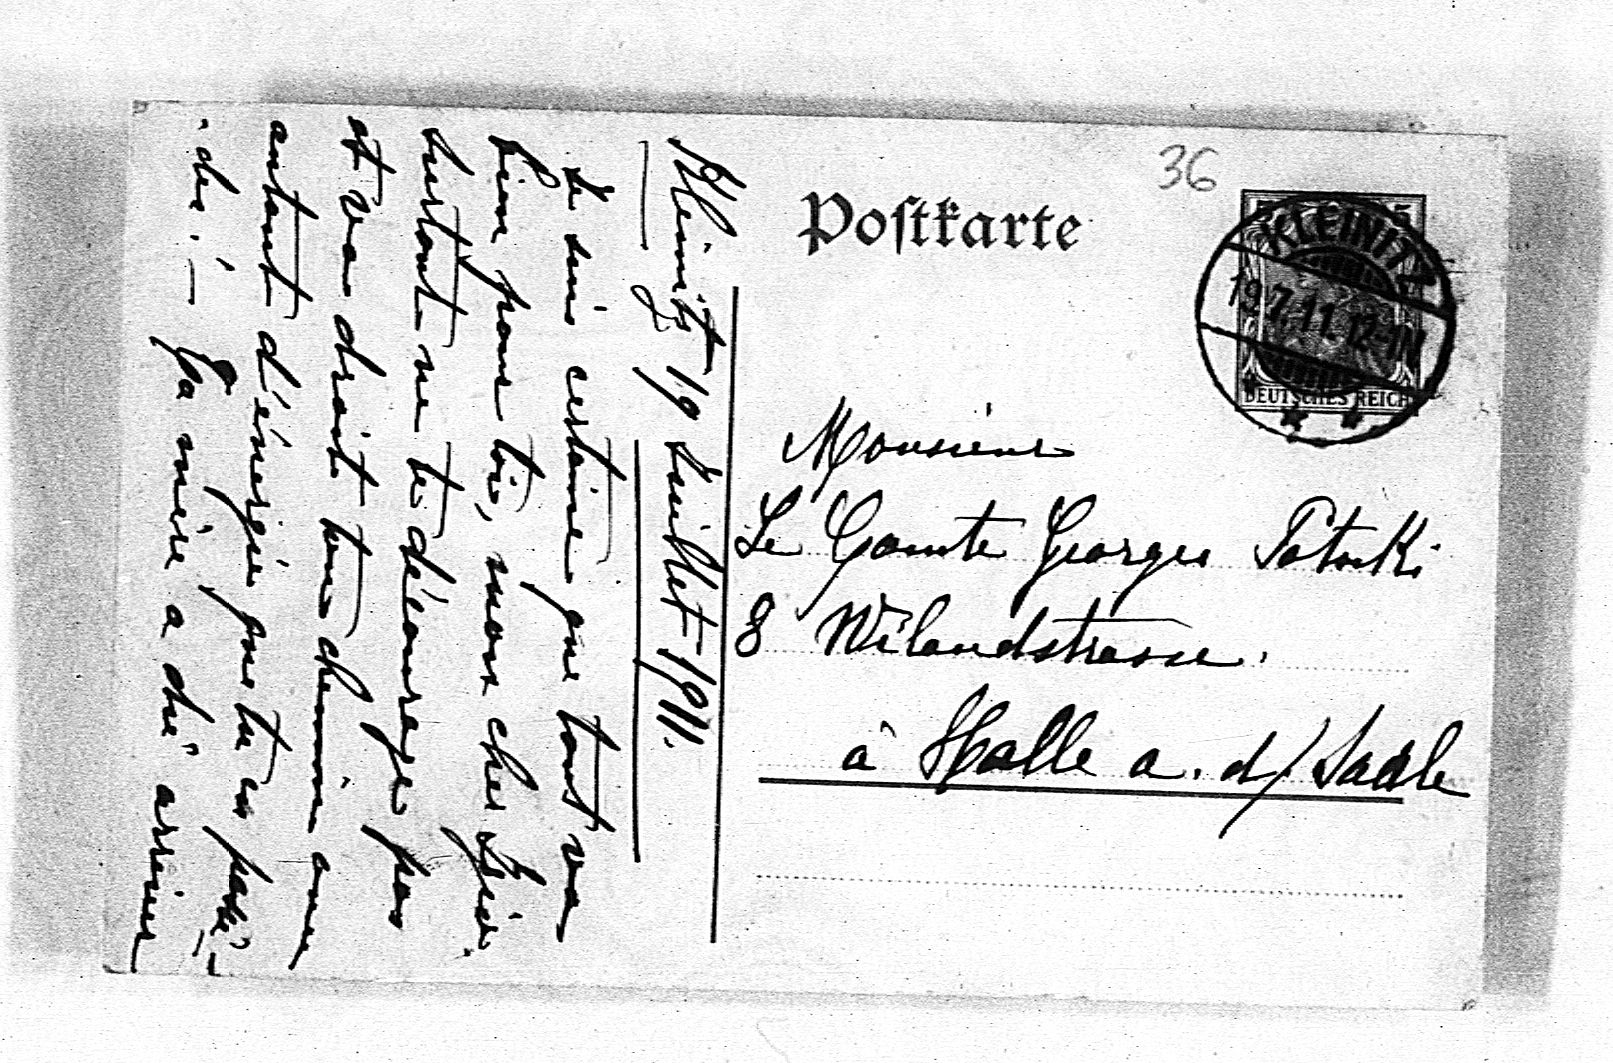 36
Postkarte
KLEINITZ
19.7.11.12-1N
5
DEUTSCHES REICH
Monsieur
Le Comte Georges Potocki
8 Wilandstrasse.
à Halle a. d/ Saale
Kleinitz 19 Juillet 1911.
Je suis certaine que tout va
bien pour toi, mon cher
surtout ne te décourage pas
et va droit ton chemin avec
autant d'énergie que tu as
Ta mère a dû arriver